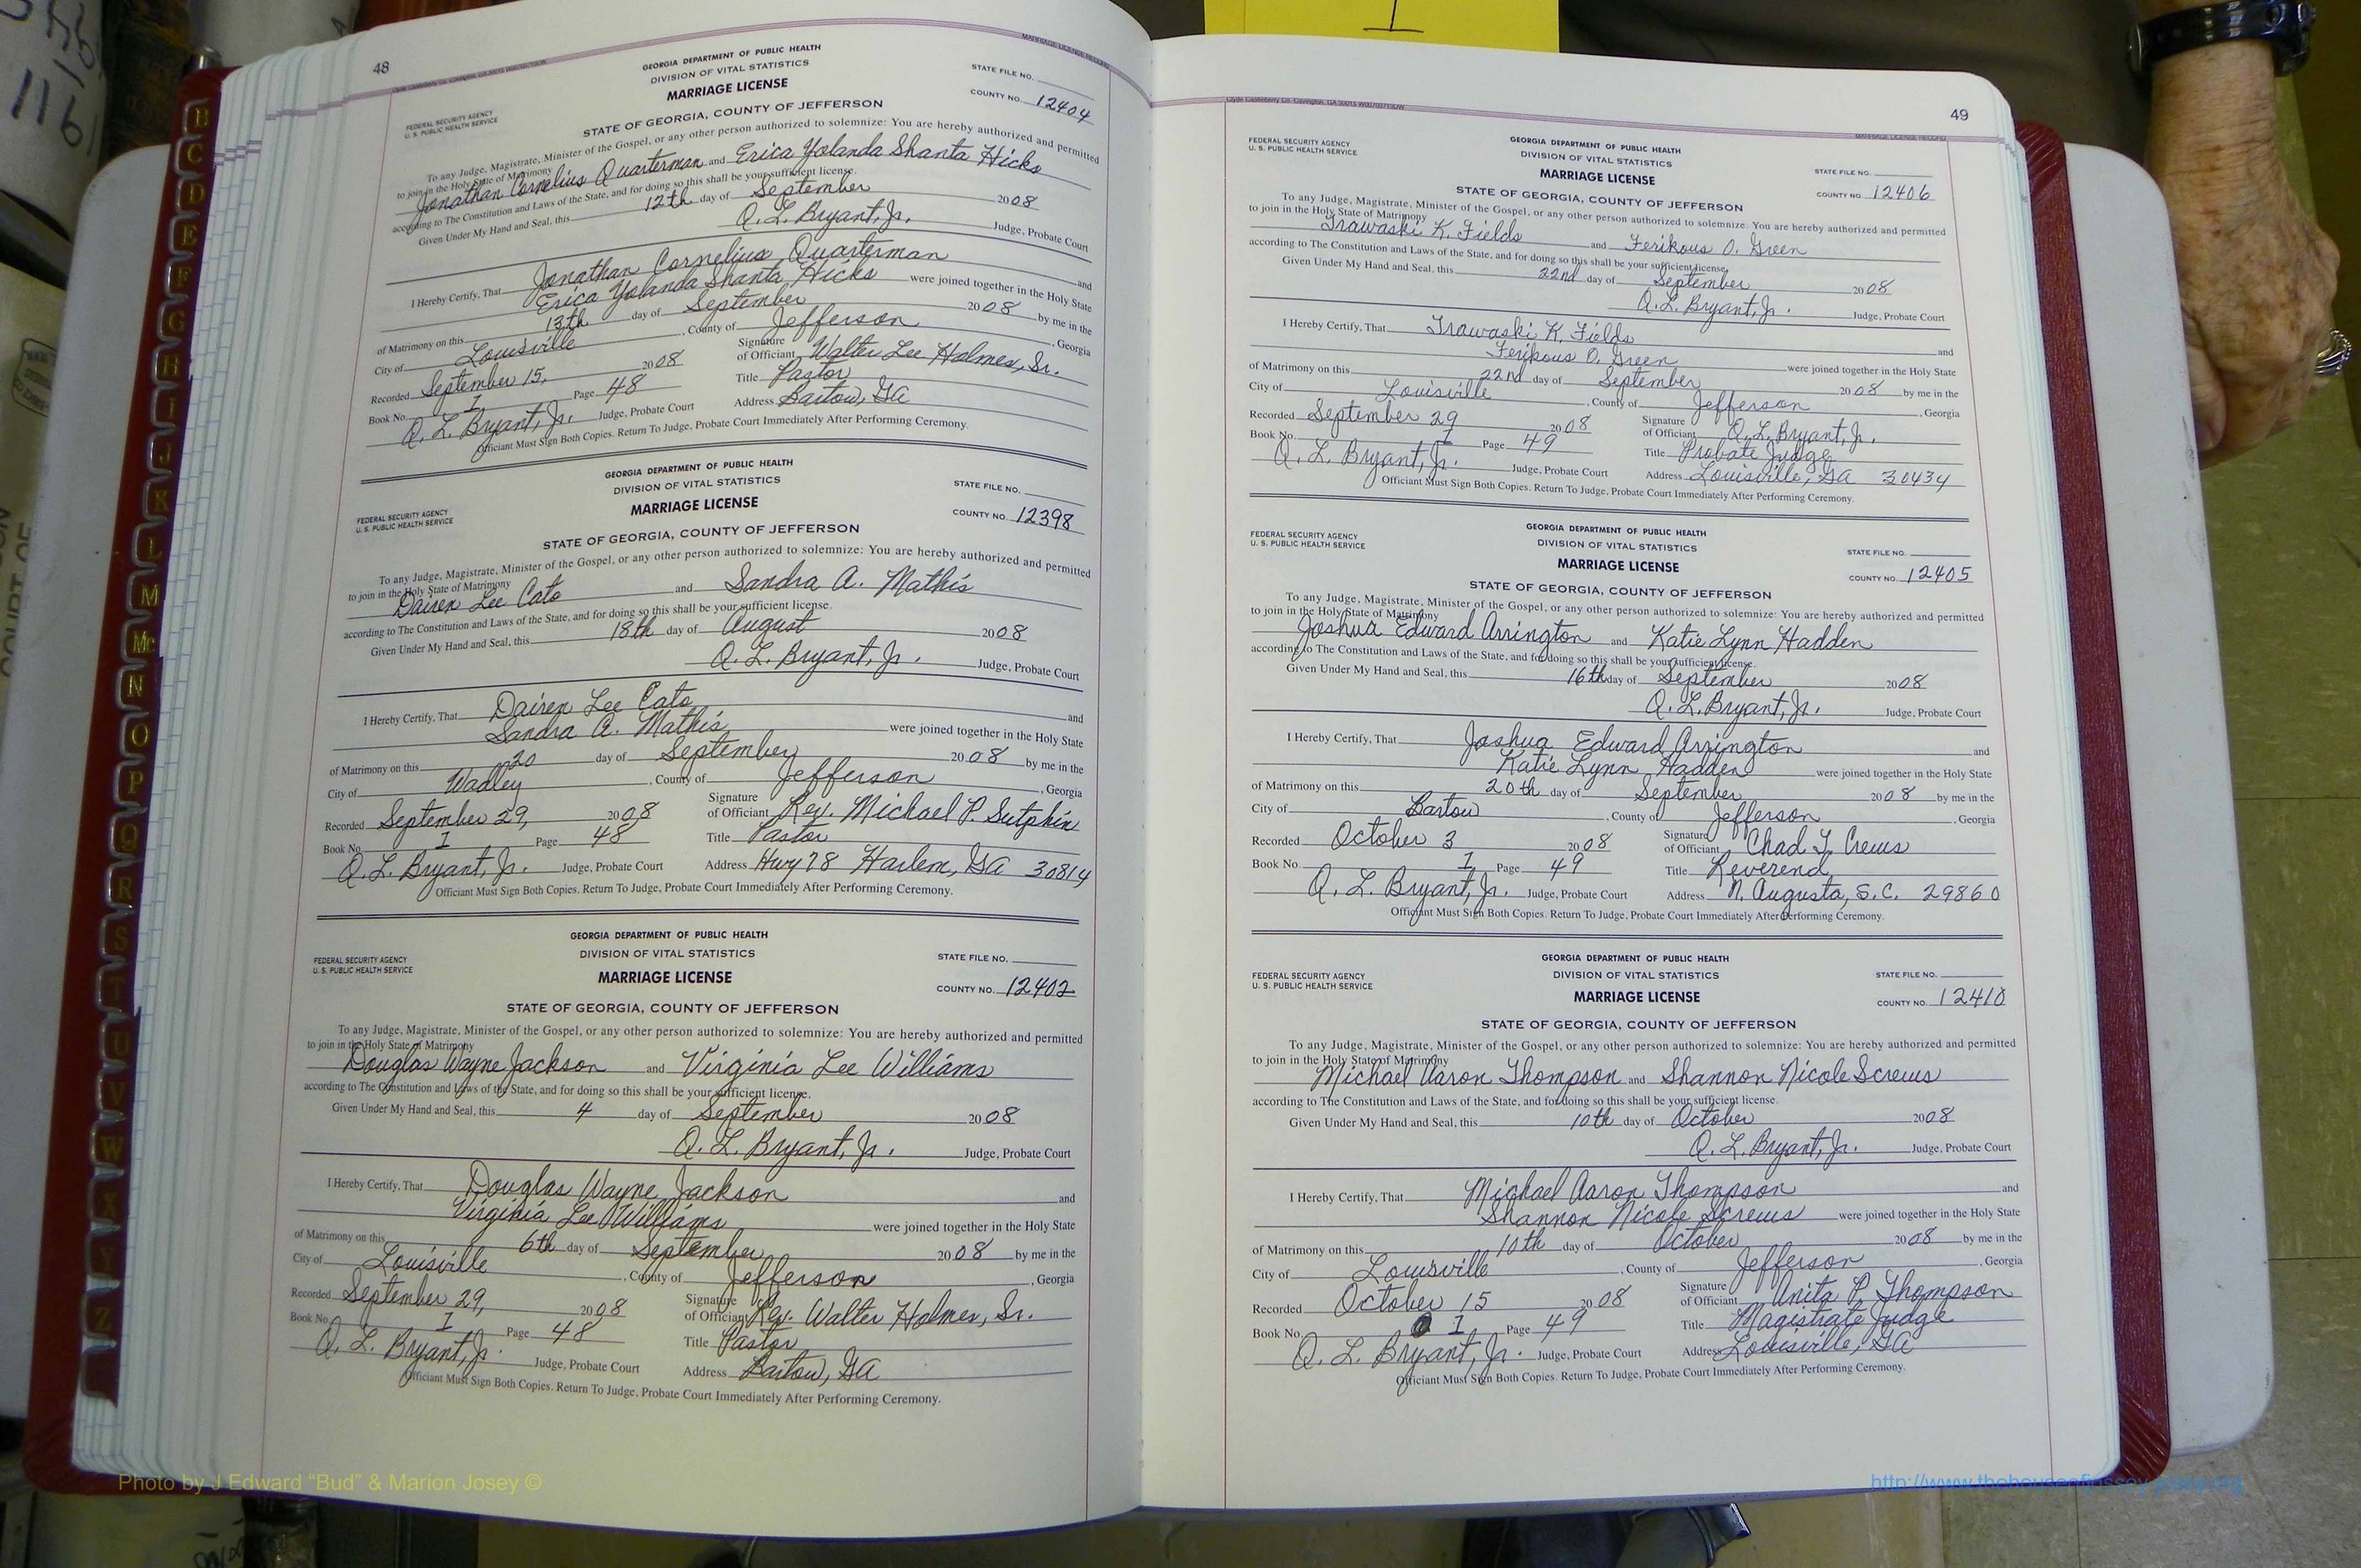 48
GEORGIA DEPARTMENT OF PUBLIC HEALTH
DIVISION OF VITAL STATISTICS
MARRIAGE LICENSE
FEDERAL SECURITY AGENCY
U. S. PUBLIC HEALTH SERVICE
STATE FILE NO.
COUNTY NO. 12404
STATE OF GEORGIA, COUNTY OF JEFFERSON
To any Judge, Magistrate, Minister of the Gospel, or any other person authorized to solemnize: You are hereby authorized and permitted
to join in the Holy State of Matrimony
Jonathan Cornelius Quarterman and Erica Yolanda Shanta Hicks
according to The Constitution and Laws of the State, and for doing so this shall be your sufficient license.
Given Under My Hand and Seal, this 12th day of September 2008
Q. L. Bryant, Jr. Judge, Probate Court
I Hereby Certify, That Jonathan Cornelius Quarterman and
Erica Yolanda Shanta Hicks were joined together in the Holy State
of Matrimony on this 13th day of September 2008 by me in the
City of Louisville, County of Jefferson, Georgia
Recorded September 15, 2008 Signature of Officiant Walter Lee Holmes, Sr.
Book No. 1 Page 48 Title Pastor
Q. L. Bryant, Jr. Judge, Probate Court Address Bartow, GA
Officiant Must Sign Both Copies. Return To Judge, Probate Court Immediately After Performing Ceremony.
GEORGIA DEPARTMENT OF PUBLIC HEALTH
DIVISION OF VITAL STATISTICS
MARRIAGE LICENSE
FEDERAL SECURITY AGENCY
U. S. PUBLIC HEALTH SERVICE
STATE FILE NO.
COUNTY NO. 12398
STATE OF GEORGIA, COUNTY OF JEFFERSON
To any Judge, Magistrate, Minister of the Gospel, or any other person authorized to solemnize: You are hereby authorized and permitted
to join in the Holy State of Matrimony
Dairen Lee Cato and Sandra A. Mathis
according to The Constitution and Laws of the State, and for doing so this shall be your sufficient license.
Given Under My Hand and Seal, this 18th day of August 2008
Q. L. Bryant, Jr. Judge, Probate Court
I Hereby Certify, That Dairen Lee Cato and
Sandra A. Mathis were joined together in the Holy State
of Matrimony on this 20 day of September 2008 by me in the
City of Wadley, County of Jefferson, Georgia
Recorded September 29, 2008 Signature of Officiant Rev. Michael P. Sutphin
Book No. 1 Page 48 Title Pastor
Q. L. Bryant, Jr. Judge, Probate Court Address Hwy 78 Harlem, GA 30814
Officiant Must Sign Both Copies. Return To Judge, Probate Court Immediately After Performing Ceremony.
GEORGIA DEPARTMENT OF PUBLIC HEALTH
DIVISION OF VITAL STATISTICS
MARRIAGE LICENSE
FEDERAL SECURITY AGENCY
U. S. PUBLIC HEALTH SERVICE
STATE FILE NO.
COUNTY NO. 12402
STATE OF GEORGIA, COUNTY OF JEFFERSON
To any Judge, Magistrate, Minister of the Gospel, or any other person authorized to solemnize: You are hereby authorized and permitted
to join in the Holy State of Matrimony
Douglas Wayne Jackson and Virginia Lee Williams
according to The Constitution and Laws of the State, and for doing so this shall be your sufficient license.
Given Under My Hand and Seal, this 4 day of September 2008
Q. L. Bryant, Jr. Judge, Probate Court
I Hereby Certify, That Douglas Wayne Jackson and
Virginia Lee Williams were joined together in the Holy State
of Matrimony on this 6th day of September 2008 by me in the
City of Louisville, County of Jefferson, Georgia
Recorded September 29, 2008 Signature of Officiant Rev. Walter Holmes, Sr.
Book No. 1 Page 48 Title Pastor
Q. L. Bryant, Jr. Judge, Probate Court Address Bartow, GA
Officiant Must Sign Both Copies. Return To Judge, Probate Court Immediately After Performing Ceremony.
49
MARRIAGE LICENSE RECORD
GEORGIA DEPARTMENT OF PUBLIC HEALTH
DIVISION OF VITAL STATISTICS
MARRIAGE LICENSE
FEDERAL SECURITY AGENCY
U. S. PUBLIC HEALTH SERVICE
STATE FILE NO.
COUNTY NO. 12406
STATE OF GEORGIA, COUNTY OF JEFFERSON
To any Judge, Magistrate, Minister of the Gospel, or any other person authorized to solemnize: You are hereby authorized and permitted
to join in the Holy State of Matrimony
Trawaski K. Fields and Ferikous O. Green
according to The Constitution and Laws of the State, and for doing so this shall be your sufficient license.
Given Under My Hand and Seal, this 22nd day of September 2008
Q. L. Bryant, Jr. Judge, Probate Court
I Hereby Certify, That Trawaski K. Fields and
Ferikous O. Green were joined together in the Holy State
of Matrimony on this 22nd day of September 2008 by me in the
City of Louisville, County of Jefferson, Georgia
Recorded September 29 2008 Signature of Officiant Q. L. Bryant, Jr.
Book No. 1 Page 49 Title Probate Judge
Q. L. Bryant, Jr. Judge, Probate Court Address Louisville, GA 30434
Officiant Must Sign Both Copies. Return To Judge, Probate Court Immediately After Performing Ceremony.
GEORGIA DEPARTMENT OF PUBLIC HEALTH
DIVISION OF VITAL STATISTICS
MARRIAGE LICENSE
FEDERAL SECURITY AGENCY
U. S. PUBLIC HEALTH SERVICE
STATE FILE NO.
COUNTY NO. 12405
STATE OF GEORGIA, COUNTY OF JEFFERSON
To any Judge, Magistrate, Minister of the Gospel, or any other person authorized to solemnize: You are hereby authorized and permitted
to join in the Holy State of Matrimony
Joshua Edward Arrington and Katie Lynn Hadden
according to The Constitution and Laws of the State, and for doing so this shall be your sufficient license.
Given Under My Hand and Seal, this 16th day of September 2008
Q. L. Bryant, Jr. Judge, Probate Court
I Hereby Certify, That Joshua Edward Arrington and
Katie Lynn Hadden were joined together in the Holy State
of Matrimony on this 20th day of September 2008 by me in the
City of Bartow, County of Jefferson, Georgia
Recorded October 3 2008 Signature of Officiant Chad T. Crews
Book No. 1 Page 49 Title Reverend
Q. L. Bryant, Jr. Judge, Probate Court Address N. Augusta, S.C. 29860
Officiant Must Sign Both Copies. Return To Judge, Probate Court Immediately After Performing Ceremony.
GEORGIA DEPARTMENT OF PUBLIC HEALTH
DIVISION OF VITAL STATISTICS
MARRIAGE LICENSE
FEDERAL SECURITY AGENCY
U. S. PUBLIC HEALTH SERVICE
STATE FILE NO.
COUNTY NO. 12410
STATE OF GEORGIA, COUNTY OF JEFFERSON
To any Judge, Magistrate, Minister of the Gospel, or any other person authorized to solemnize: You are hereby authorized and permitted
to join in the Holy State of Matrimony
Michael Aaron Thompson and Shannon Nicole Screws
according to The Constitution and Laws of the State, and for doing so this shall be your sufficient license.
Given Under My Hand and Seal, this 10th day of October 2008
Q. L. Bryant, Jr. Judge, Probate Court
I Hereby Certify, That Michael Aaron Thompson and
Shannon Nicole Screws were joined together in the Holy State
of Matrimony on this 10th day of October 2008 by me in the
City of Louisville, County of Jefferson, Georgia
Recorded October 15 2008 Signature of Officiant Anita P. Thompson
Book No. 1 Page 49 Title Magistrate Judge
Q. L. Bryant, Jr. Judge, Probate Court Address Louisville, GA
Officiant Must Sign Both Copies. Return To Judge, Probate Court Immediately After Performing Ceremony.
B
C
D
E
F
G
H
I
J
K
L
M
Mc
N
O
P
Q
R
S
T
U
V
W
X
Y
Z
Photo by J Edward “Bud” & Marion Josey ©